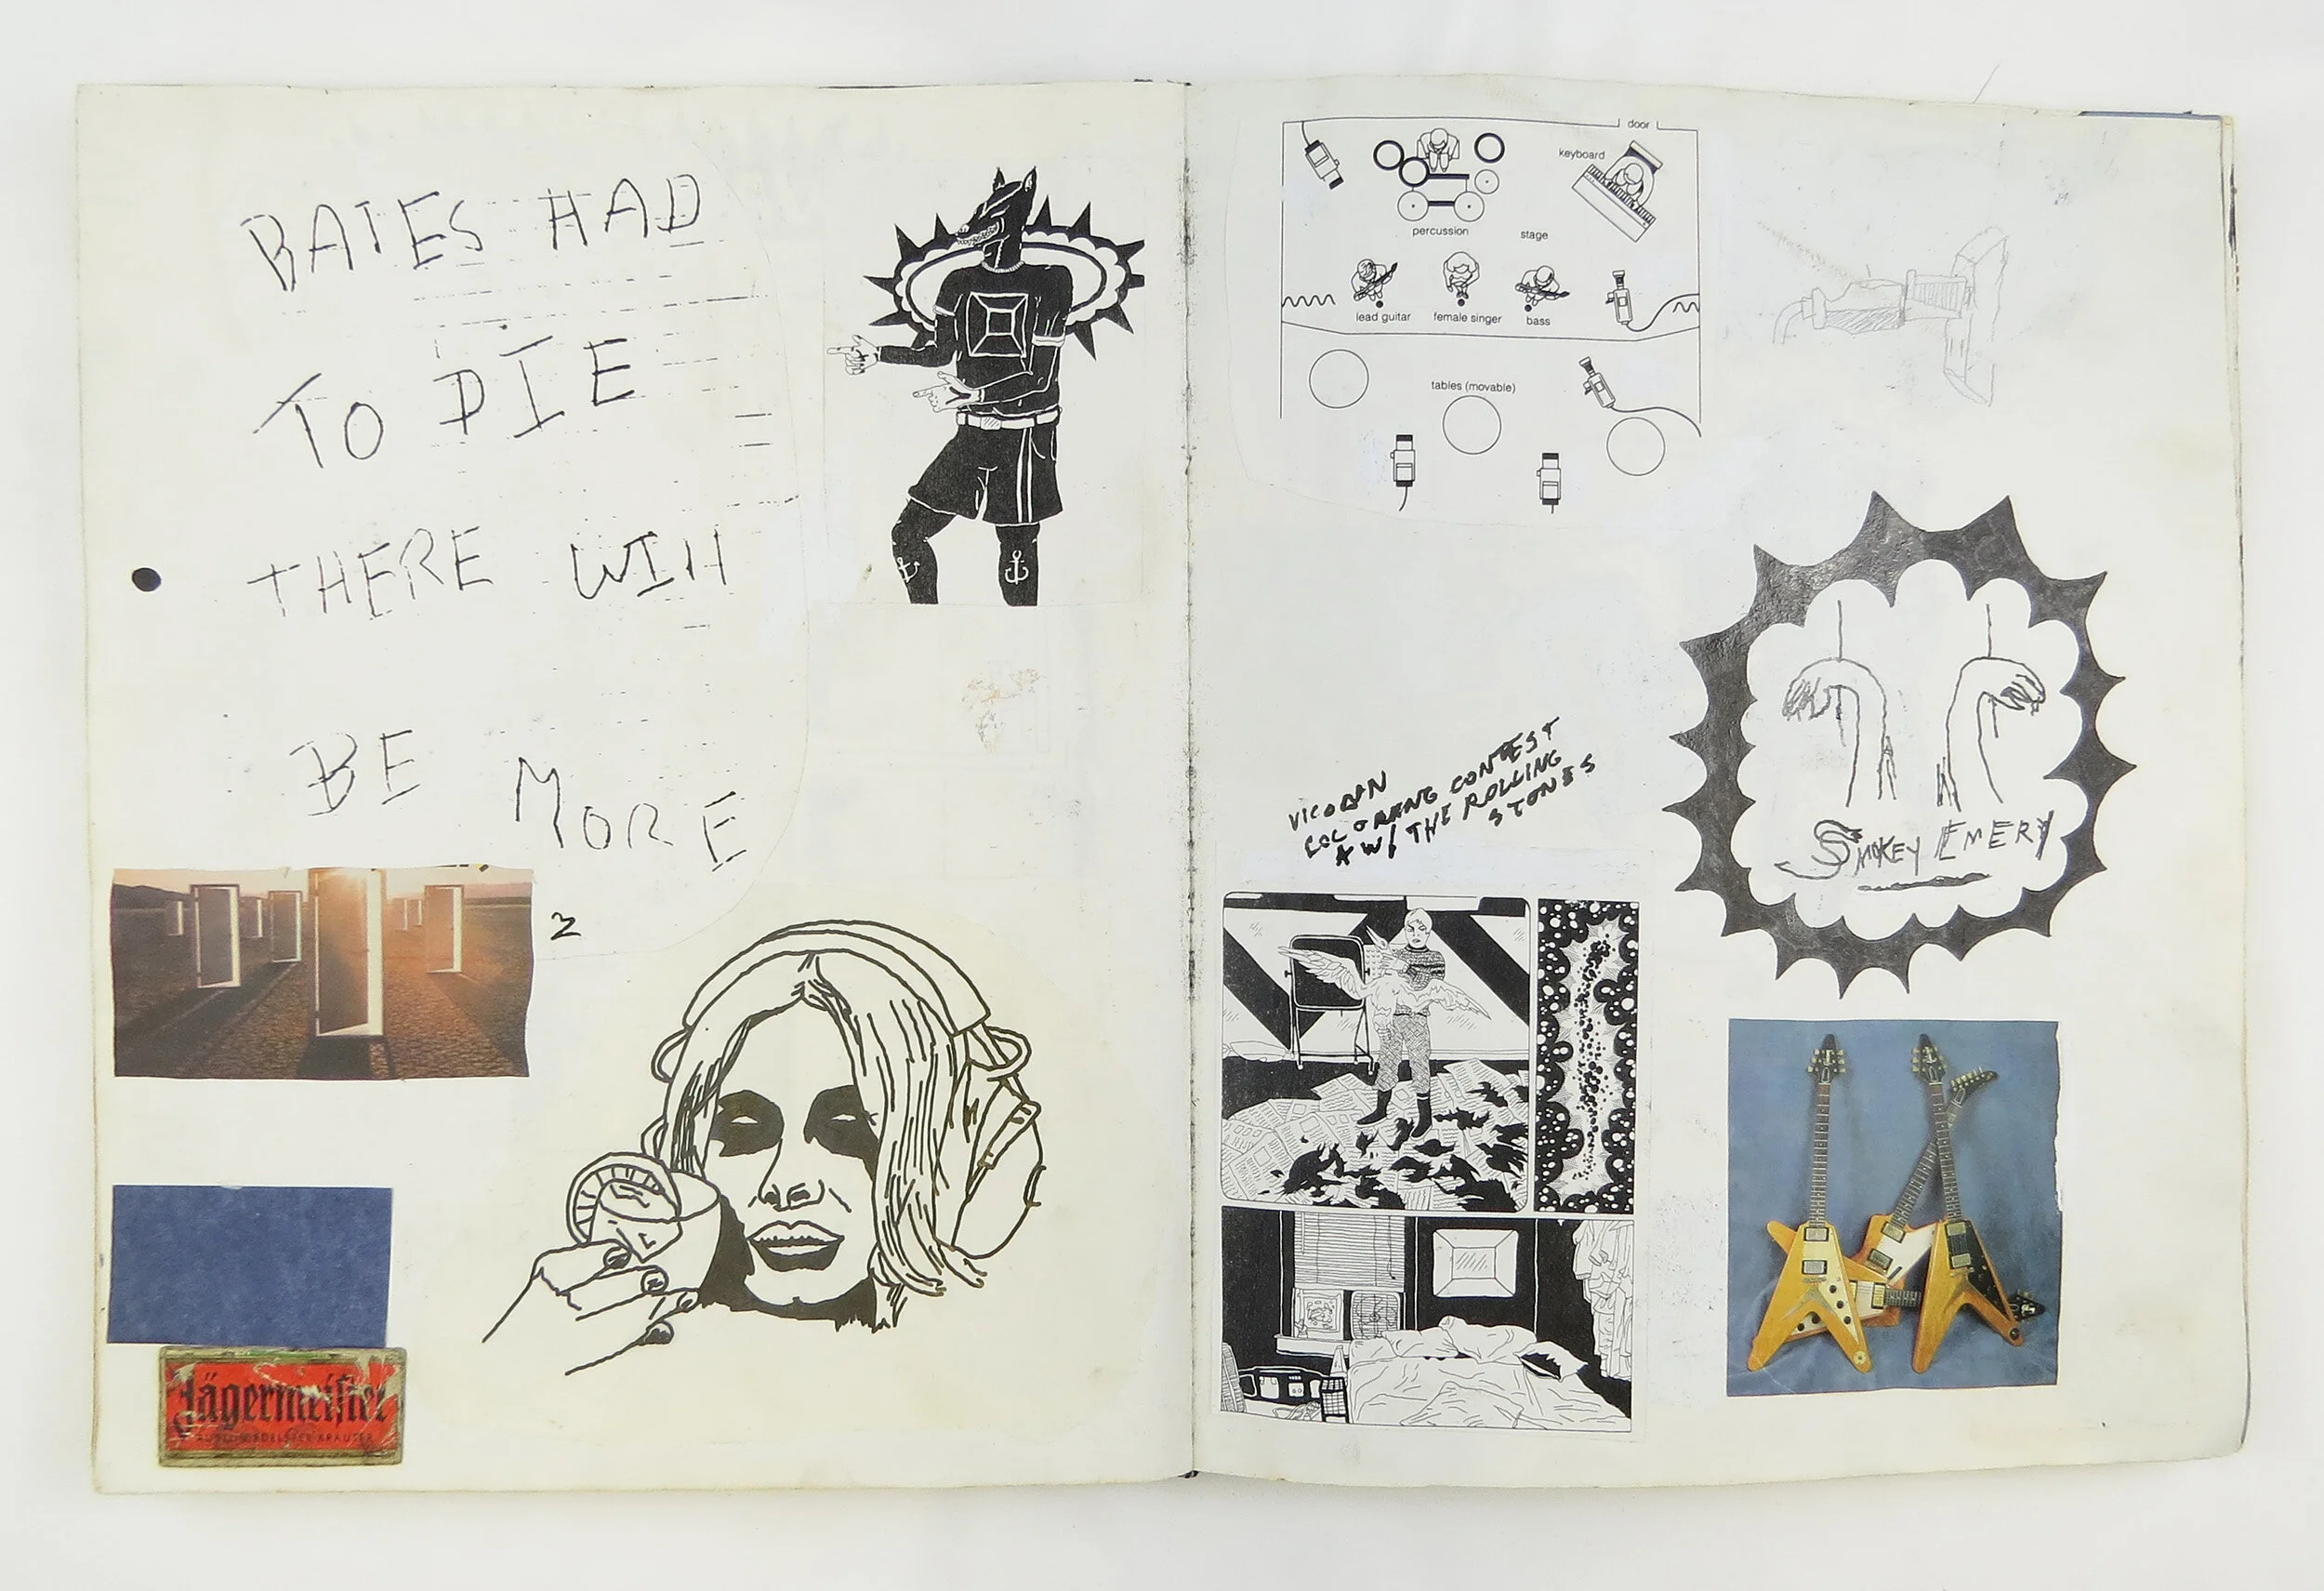 BATES HAD
TO DIE
THERE WIll
BE MORE
2
Jägermeister
door
keyboard
percussion
stage
lead guitar
female singer
bass
tables (movable)
VICODIN
COLORING CONTEST
A W/ THE ROLLING
STONES
SMOKEY EMERY